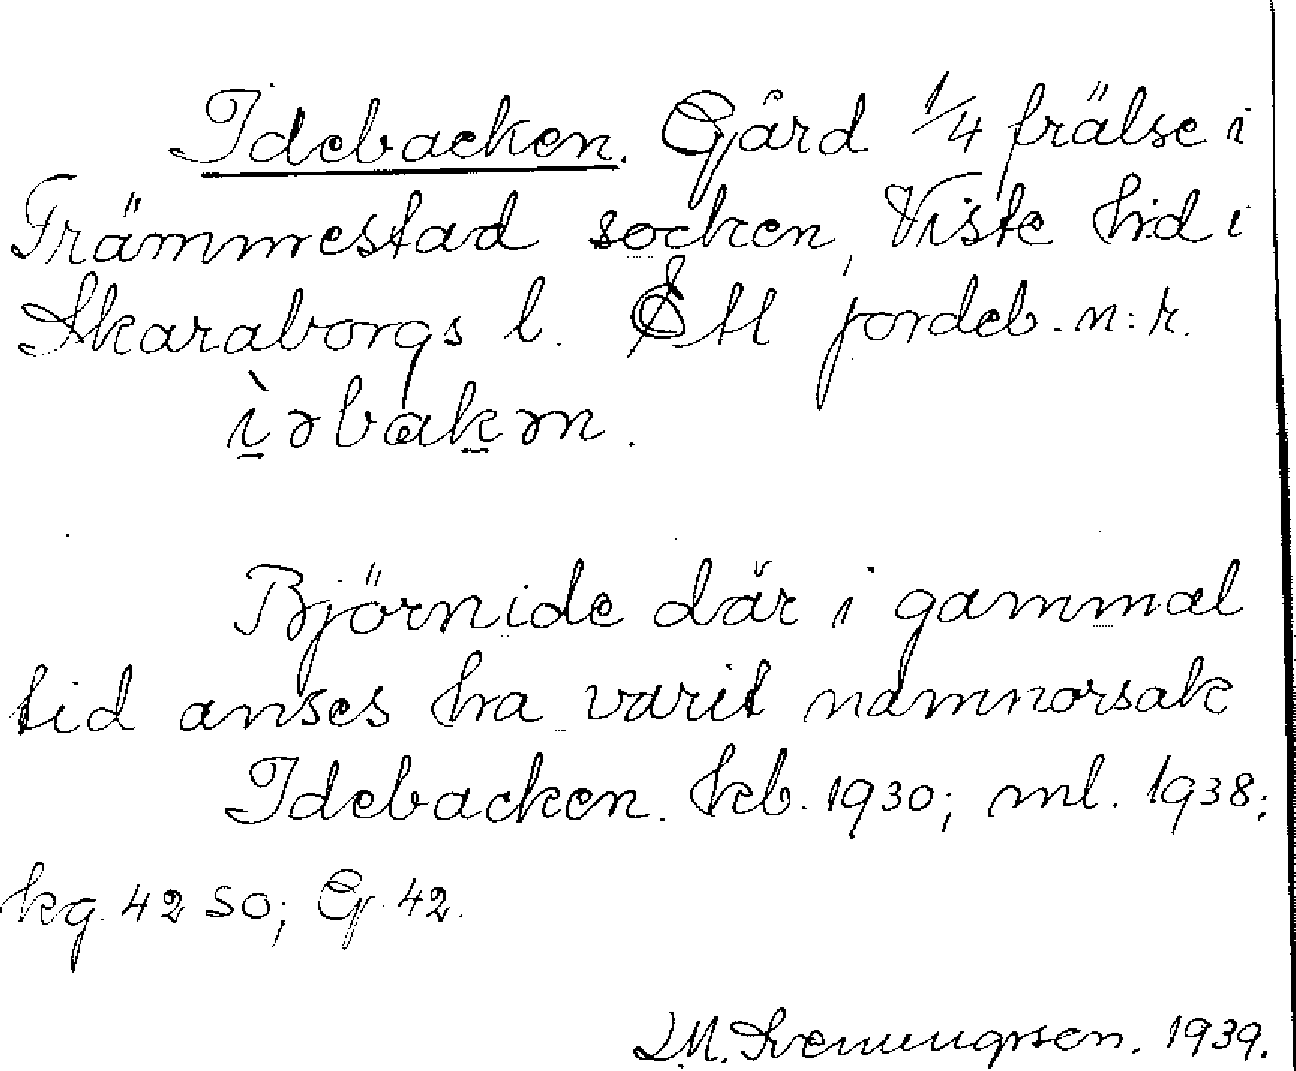 Idebacken. Gård 1/4 frälse i
Främmestad socken, Viste hd i
Skaraborgs l. Ett jordeb. n:r.
ìəbakən.
Björnide där i gammal
tid anses ha varit namnorsak
Idebacken. kb. 1930; ml. 1938;
kg. 42 SO; G. 42.
1939.